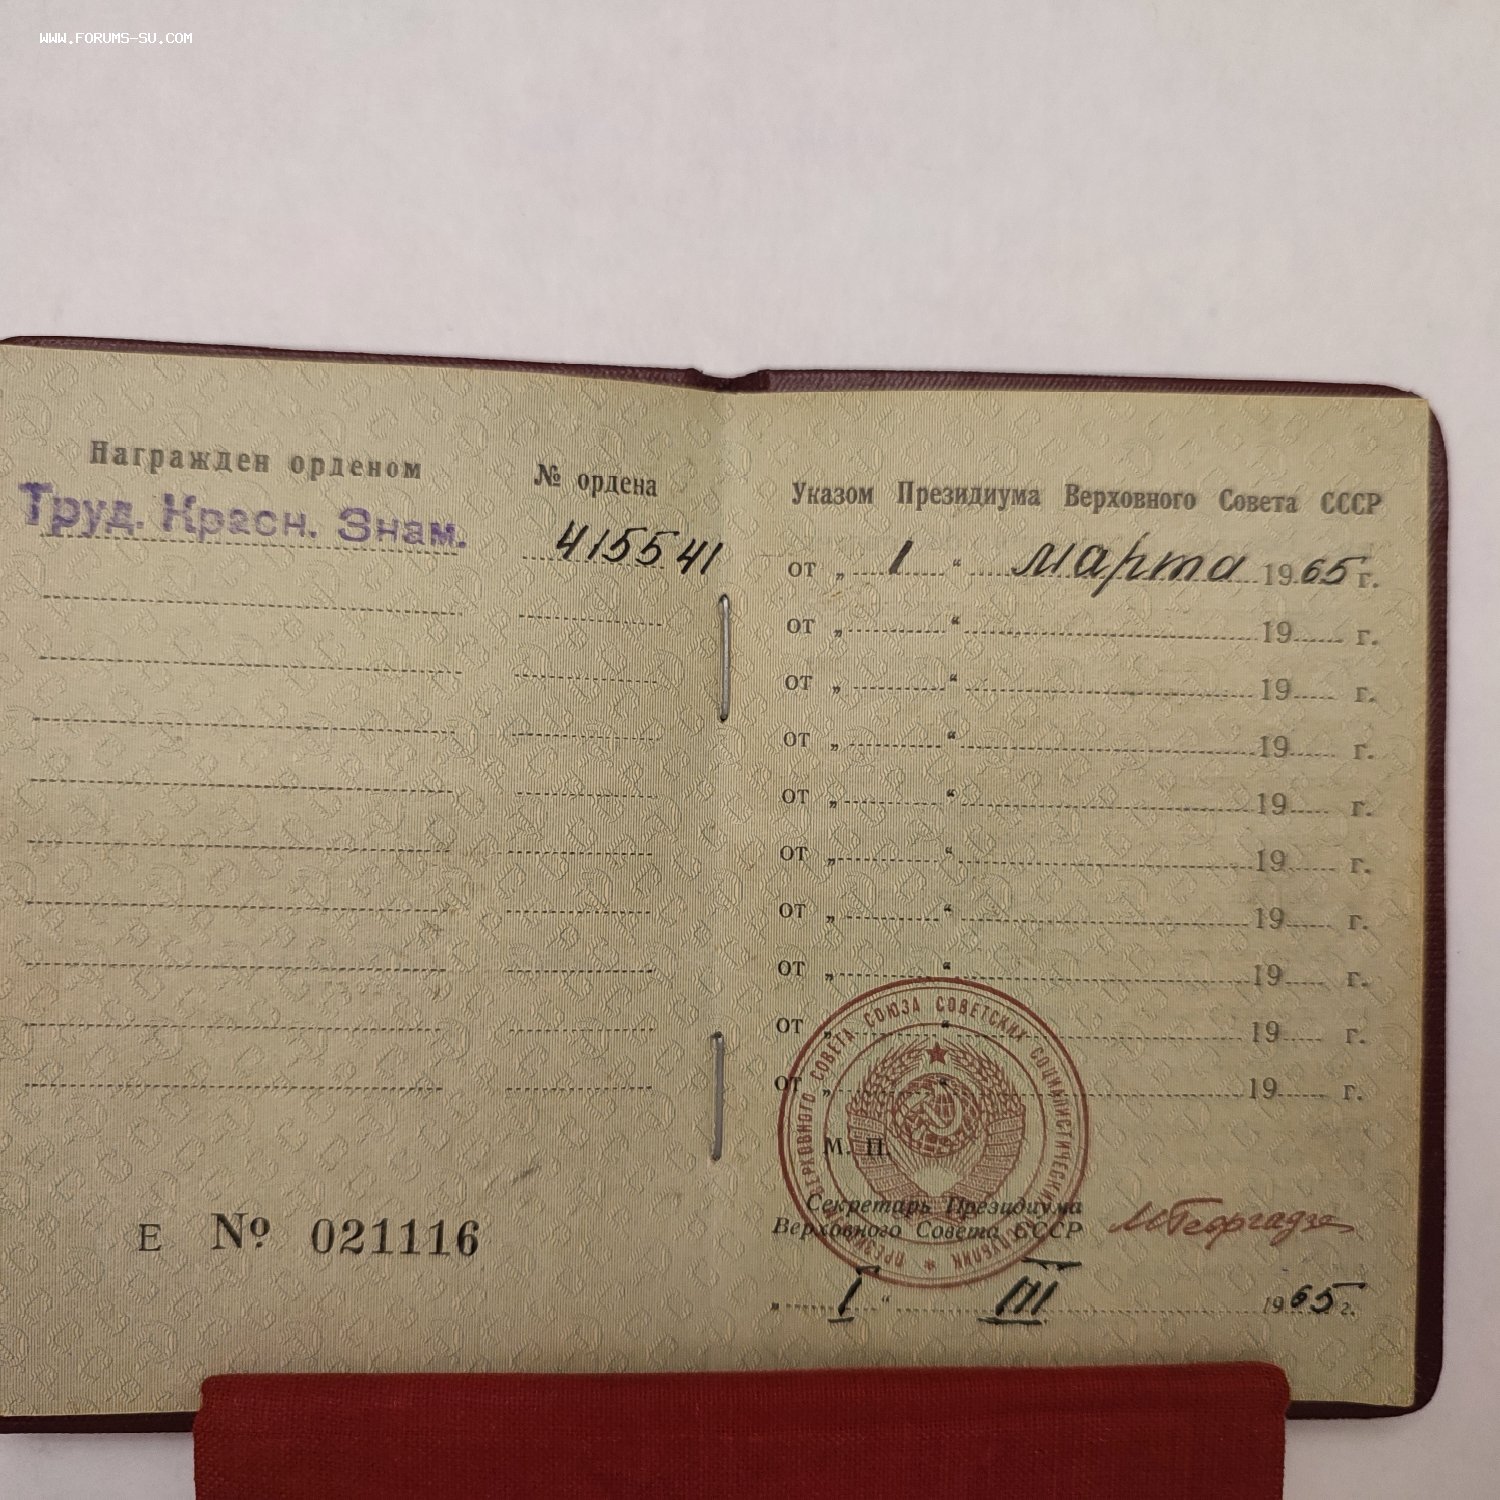 WWW.FORUMS-SU.COM
Награжден орденом
№ ордена
Труд. Красн. Знам.
415541
Е № 021116
Указом Президиума Верховного Совета СССР
от „ 1 “ марта 1965 г.
от „ “ 19 г.
от „ “ 19 г.
от „ “ 19 г.
от „ “ 19 г.
от „ “ 19 г.
от „ “ 19 г.
от „ “ 19 г.
от „ “ 19 г.
от „ “ 19 г.
ПРЕЗИДИУМ ВЕРХОВНОГО СОВЕТА СОЮЗА СОВЕТСКИХ СОЦИАЛИСТИЧЕСКИХ РЕСПУБЛИК
М. П.
Секретарь Президиума
Верховного Совета СССР
М Георгадзе
„ I “ III 1965 г.